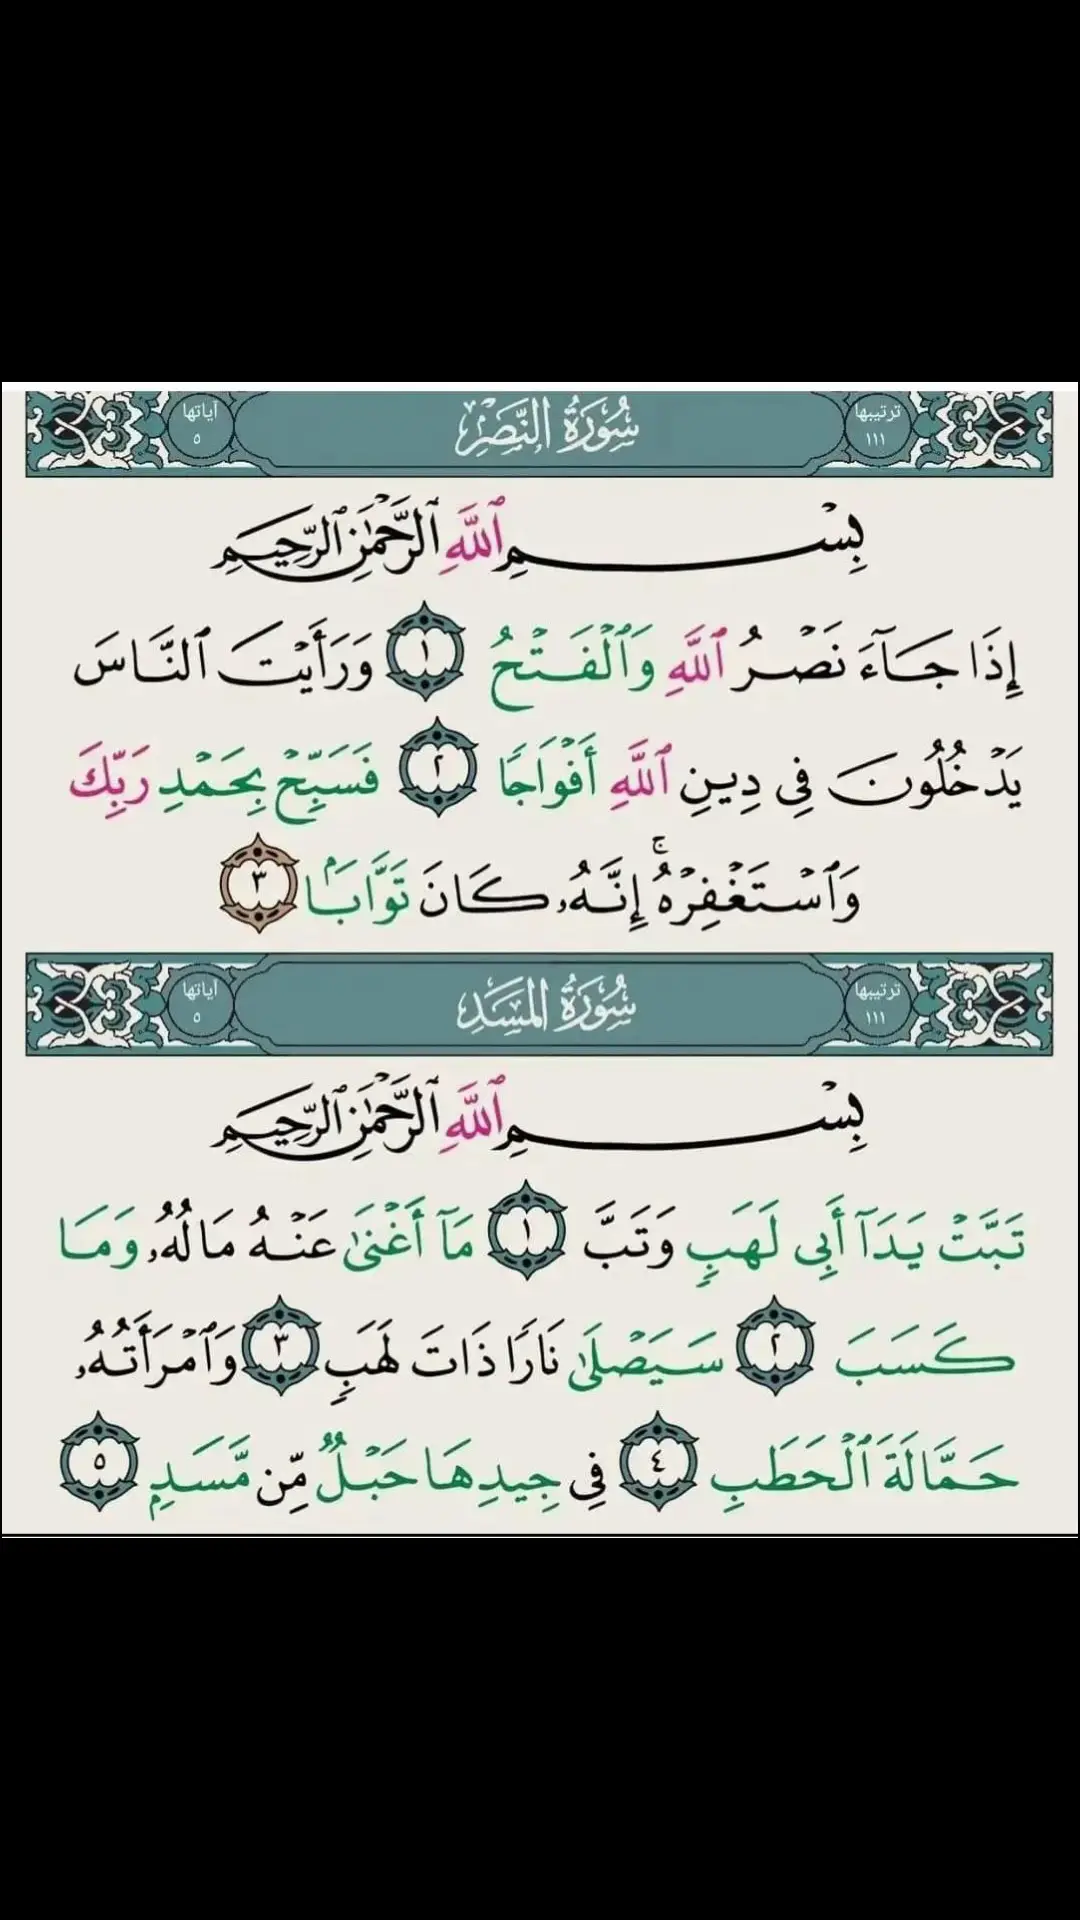 ترتيبها ١١١ سُورَةُ النَّصْرِ آياتها ٥
بِسْمِ ٱللَّهِ ٱلرَّحْمَٰنِ ٱلرَّحِيمِ
إِذَا جَآءَ نَصْرُ ٱللَّهِ وَٱلْفَتْحُ ١ وَرَأَيْتَ ٱلنَّاسَ
يَدْخُلُونَ فِي دِينِ ٱللَّهِ أَفْوَاجًا ٢ فَسَبِّحْ بِحَمْدِ رَبِّكَ
وَٱسْتَغْفِرْهُ ۚ إِنَّهُۥ كَانَ تَوَّابَۢا ٣
ترتيبها ١١١ سُورَةُ المَسَدِ آياتها ٥
بِسْمِ ٱللَّهِ ٱلرَّحْمَٰنِ ٱلرَّحِيمِ
تَبَّتْ يَدَآ أَبِي لَهَبٍ وَتَبَّ ١ مَآ أَغْنَىٰ عَنْهُ مَالُهُۥ وَمَا
كَسَبَ ٢ سَيَصْلَىٰ نَارًا ذَاتَ لَهَبٍ ٣ وَٱمْرَأَتُهُۥ
حَمَّالَةَ ٱلْحَطَبِ ٤ فِي جِيدِهَا حَبْلٌ مِّن مَّسَدٍۭ ٥